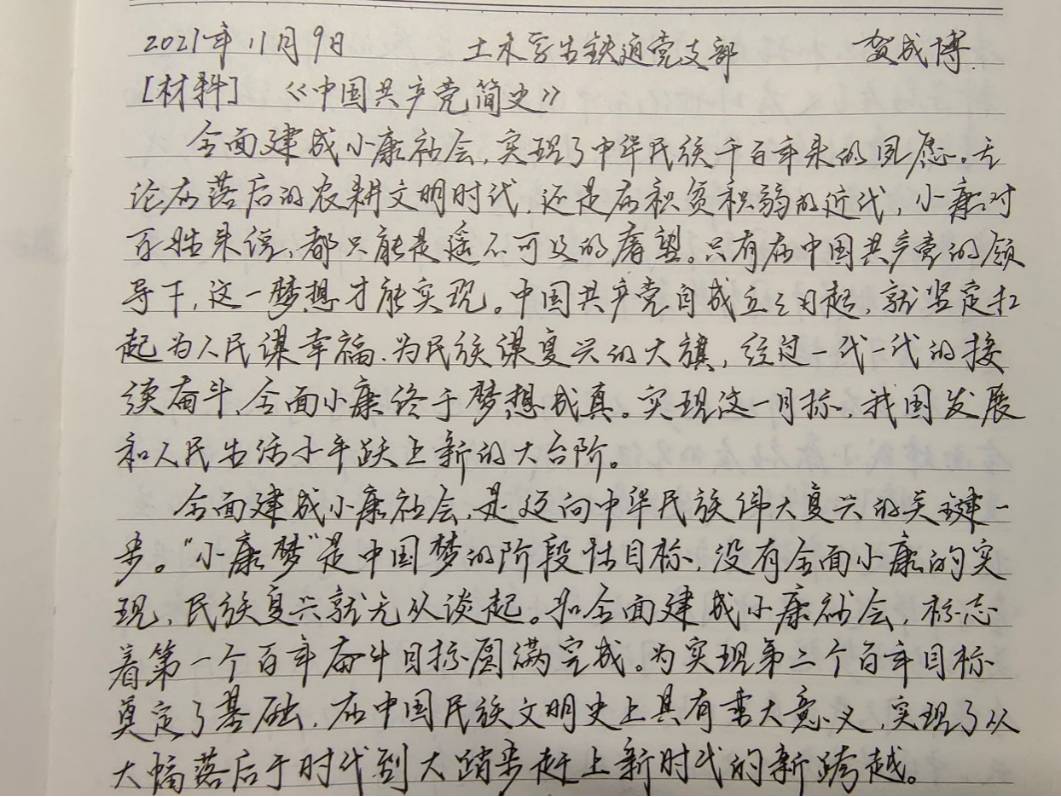 2021年11月9日 土木学古铁道党支部 贺成博
[材料] 《中国共产党简史》
全面建成小康社会，实现了中华民族千百年来的夙愿。无
论在落后的农耕文明时代，还是在积贫积弱的近代，小康对
百姓来说，都只能是遥不可及的奢望。只有在中国共产党的领
导下，这一梦想才能实现。中国共产党自成立之日起，就坚定扛
起为人民谋幸福、为民族谋复兴的大旗，经过一代一代的接
续奋斗，全面小康终于梦想成真。实现这一目标，我国发展
和人民生活水平跃上新的大台阶。
全面建成小康社会，是迈向中华民族伟大复兴的关键一
步。“小康梦”是中国梦的阶段性目标，没有全面小康的实
现，民族复兴就无从谈起。和全面建成小康社会，标志
着第一个百年奋斗目标圆满完成。为实现第二个百年目标
奠定了基础，在中国民族文明史上具有重大意义，实现了从
大幅落后于时代到大踏步赶上新时代的新跨越。